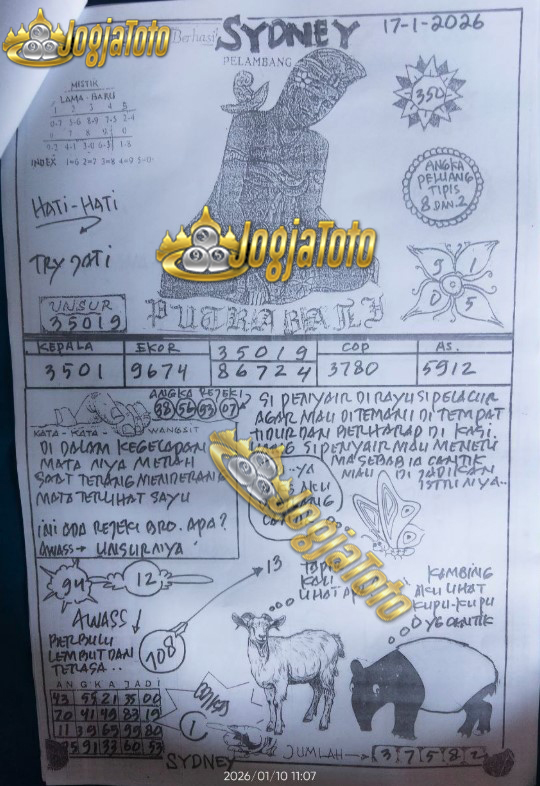 JogjaToto
Berhasi
SYDNEY
17-1-2026
PELAMBANG
MISTIK
LAMA - BARU
1 2 3 4 5
0-7 5-6 8-9 7-5 2-4
6 7 8 9 0
9-2 4-1 3-0 6-8 1-8
INDEX 1=6 2=7 3=8 4=9 5=0
350
ANGKA
PELUANG
TIPIS
8 DAN 2
HATI-HATI
TRY JATI
JogjaToto
9 1
0 5
UNSUR
35019
PUTRA BALI
KEPALA EKOR 35019 COP AS.
3501 9674 86724 3780 5912
ANGKA REJEKI
88 56 93 07
KATA - KATA - WANGSIT
DI DALAM KEGELAPAN
MATA NYA MERAH
SAAT TERANG MENDERANG
MATA TERLIHAT SAYU
INI ADA REJEKI BRO. APA?
AWASS → UNSURNYA
SI PENYAIR DIRAYU SI PELACUR
AGAR MAU DI TEMANI DI TEMPAT
TIDUR DAN BERHARAP DI KASI
SI PENYAIR MAU MENERI
MA SEBAB IA CANTIK
MAU DI JADIKAN
ISTRINYA..
JogjaToto
94
12
13
KAMBING
AKU LIHAT
KUPU-KUPU
YG CANTIK
AWASS
BERBULU
LEMBUT DAN
TERASA..
708
ANGKA JADI
43 55 21 35 00
20 41 49 83 19
11 39 69 99 80
35 91 33 60 53
1
SYDNEY
JUMLAH → 3 7 5 8 2
2026/01/10 11:07